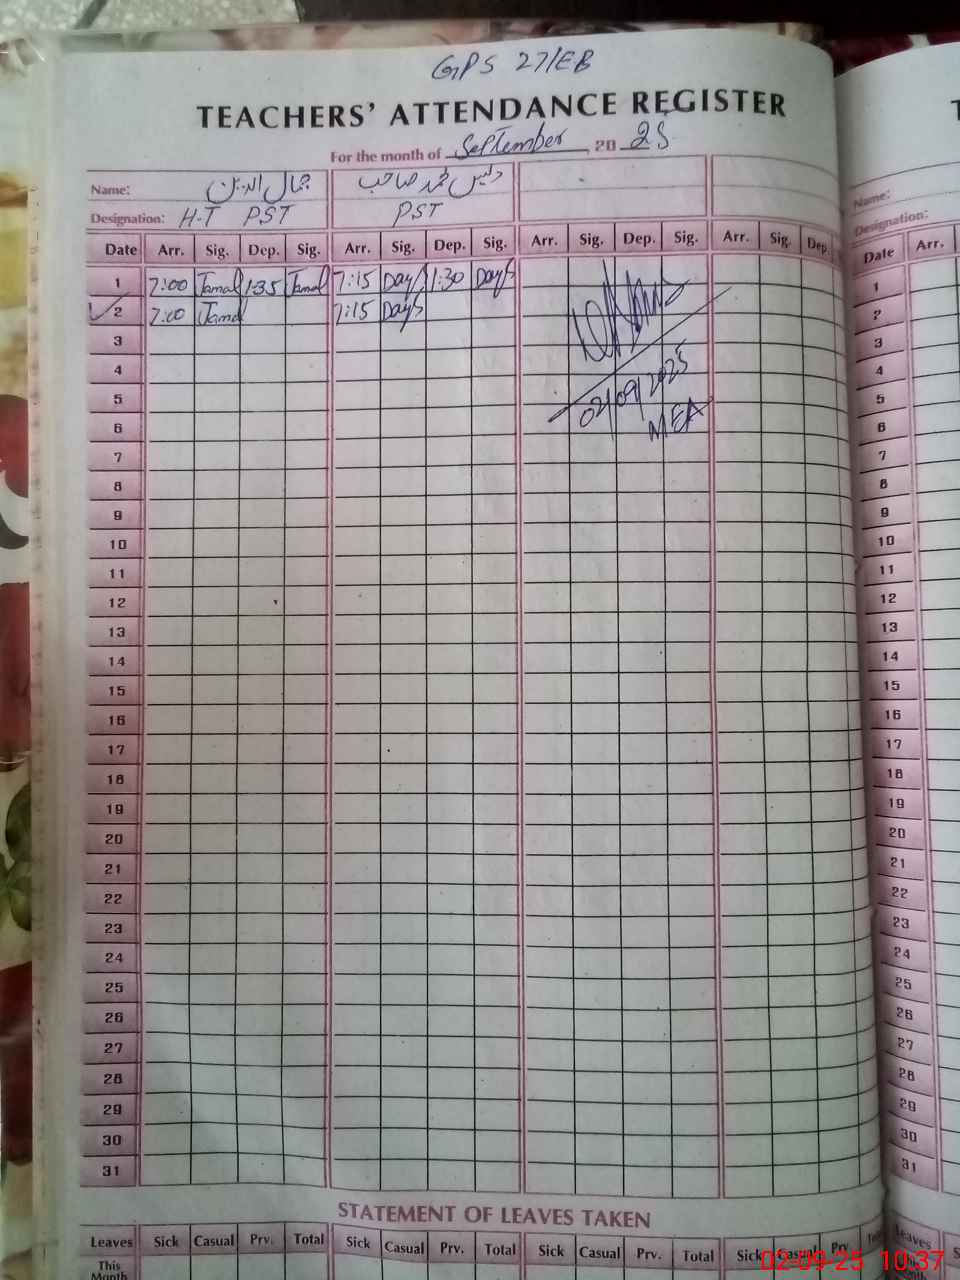 GPS 27/EB
TEACHERS' ATTENDANCE REGISTER
For the month of September, 2025
Name: جمال الدین محمد صاحب
Designation: H-T PST PST
Date Arr. Sig. Dep. Sig. Arr. Sig. Dep. Sig. Arr. Sig. Dep. Sig. Arr. Sig. Dep.
1 7:00 Jamal 1:35 Jamal 7:15 Days 1:30 Days
2 7:00 Jamal 7:15 Days
3
4
5 02/09/2025
6 MEA
7
8
9
10
11
12
13
14
15
16
17
18
19
20
21
22
23
24
25
26
27
28
29
30
31
STATEMENT OF LEAVES TAKEN
Leaves Sick Casual Prv. Total Sick Casual Prv. Total Sick Casual Prv. Total Sick Casual Prv.
This
Month
T
Name:
Designation:
Date Arr.
1
2
3
4
5
6
7
8
9
10
11
12
13
14
15
16
17
18
19
20
21
22
23
24
25
26
27
28
29
30
31
Leaves S
02-09-25 10:37